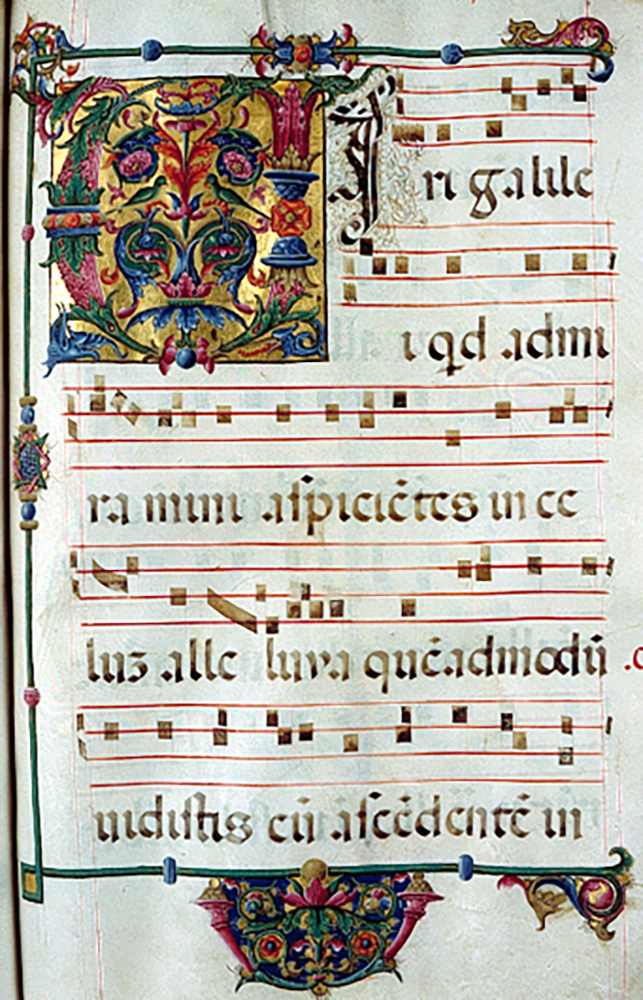 VIri galile
i qd admi
ramini aſpiciētes in ce
luʒ alle luya quēadmodū
uidiſtis eū aſcēdentē in